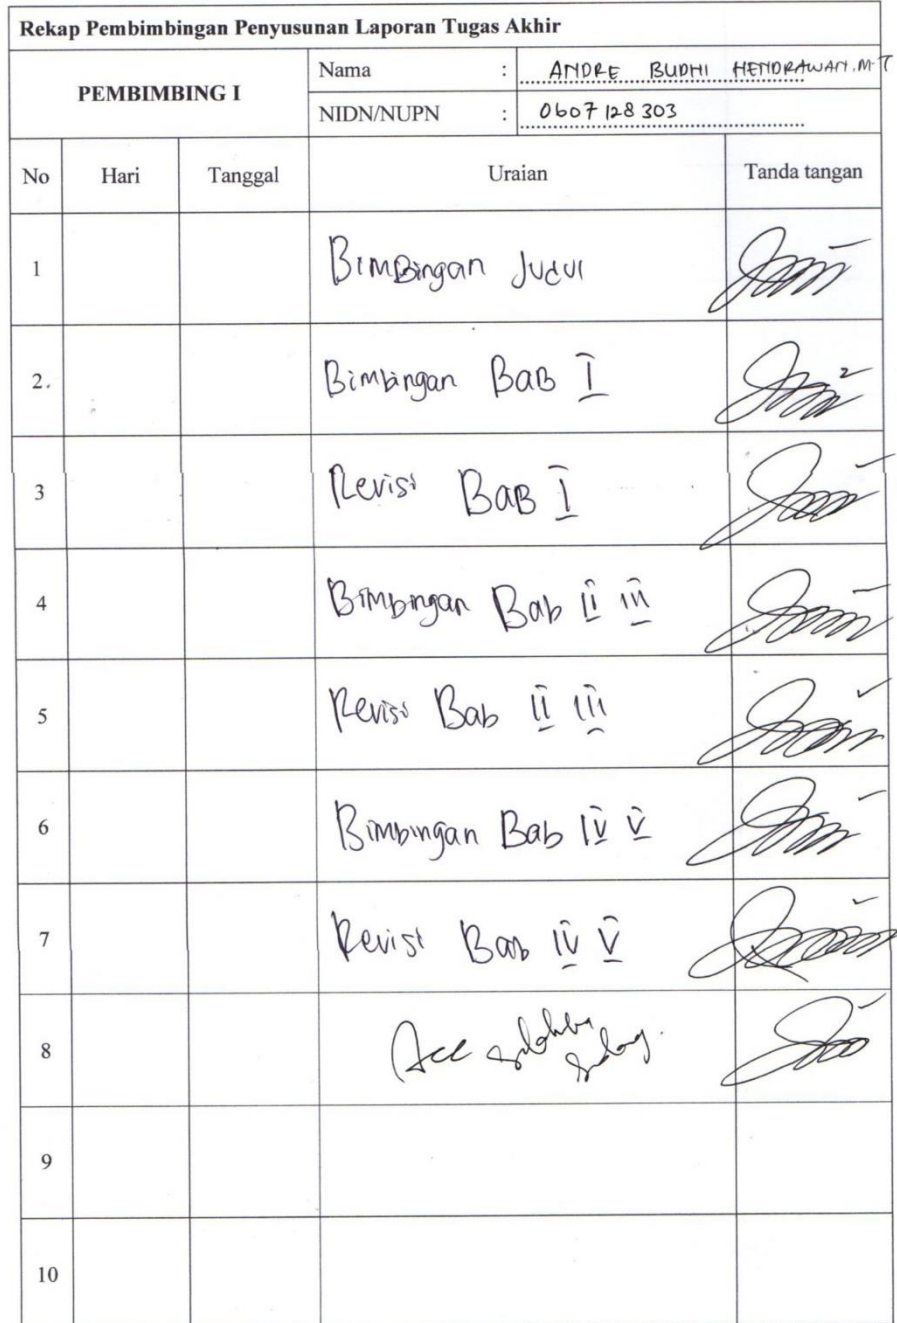 Rekap Pembimbingan Penyusunan Laporan Tugas Akhir
PEMBIMBING I
Nama : ANDRE BUDHI HENDRAWAN.M.T
NIDN/NUPN : 0607128303
No Hari Tanggal Uraian Tanda tangan
1 Bimbingan Judul
2. Bimbingan Bab I
3 Revisi Bab I
4 Bimbingan Bab II III
5 Revisi Bab II III
6 Bimbingan Bab IV V
7 Revisi Bab IV V
8 Acc silahkan
sidang.
9
10